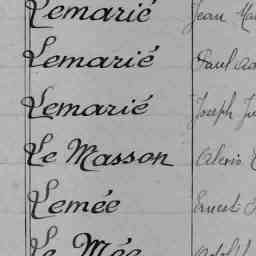 Lemarié Jean Ma
Lemarié Paul
Lemarié Joseph Ju
Le Masson Alexis
Lemée Ernest
Le Mée Adolph